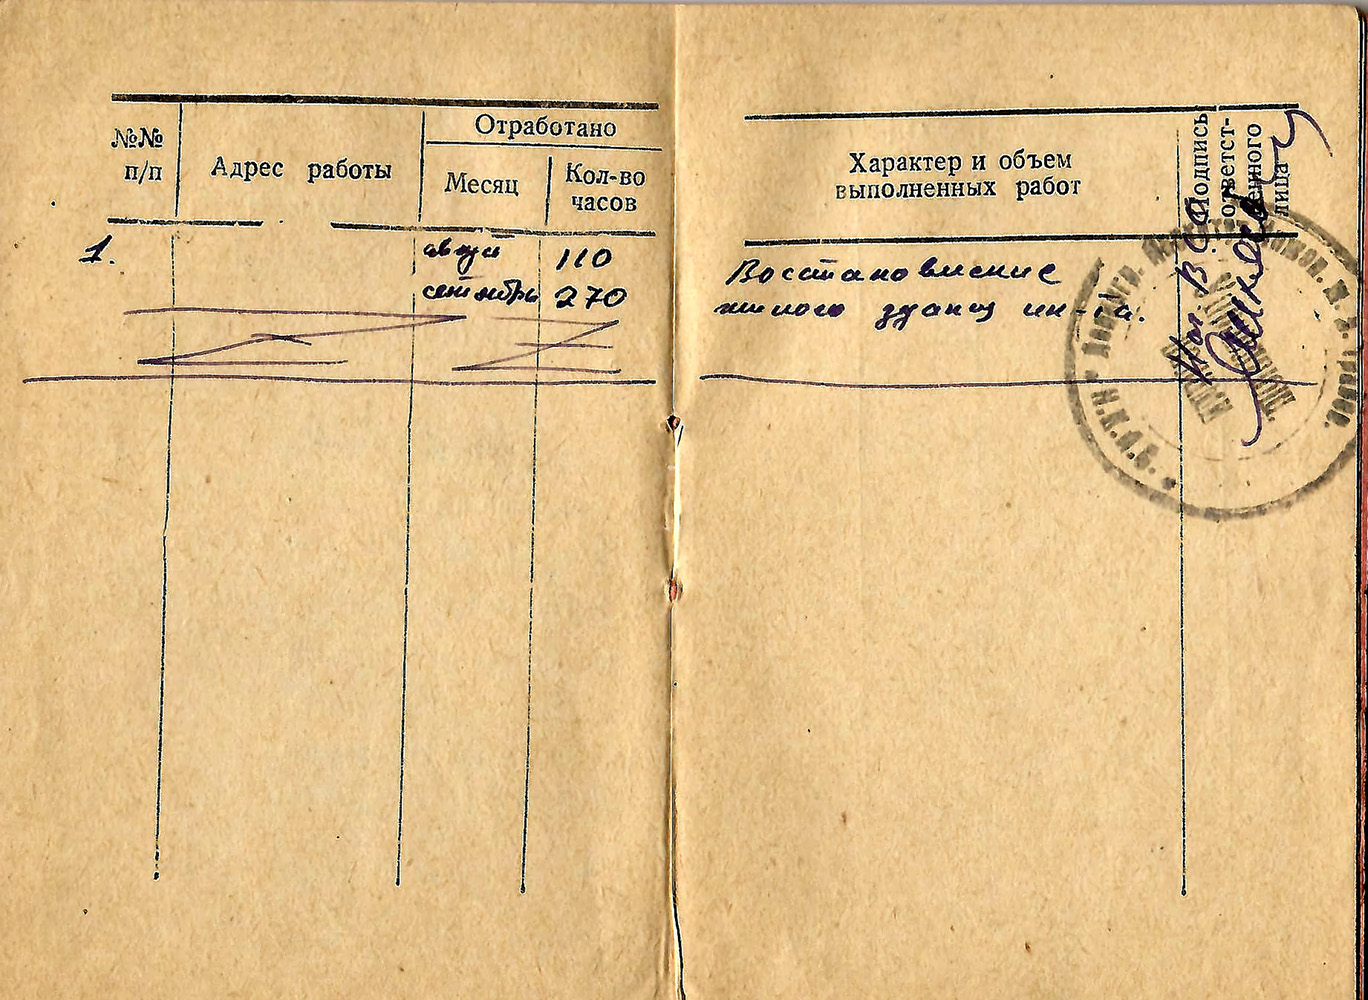 №№
п/п
Адрес работы
Отработано
Месяц
Кол-во
часов
1.
август
110
сентябрь
270
Характер и объем
выполненных работ
Подпись
ответст-
венного
лица
Восстановление
жилого здания ин-та.